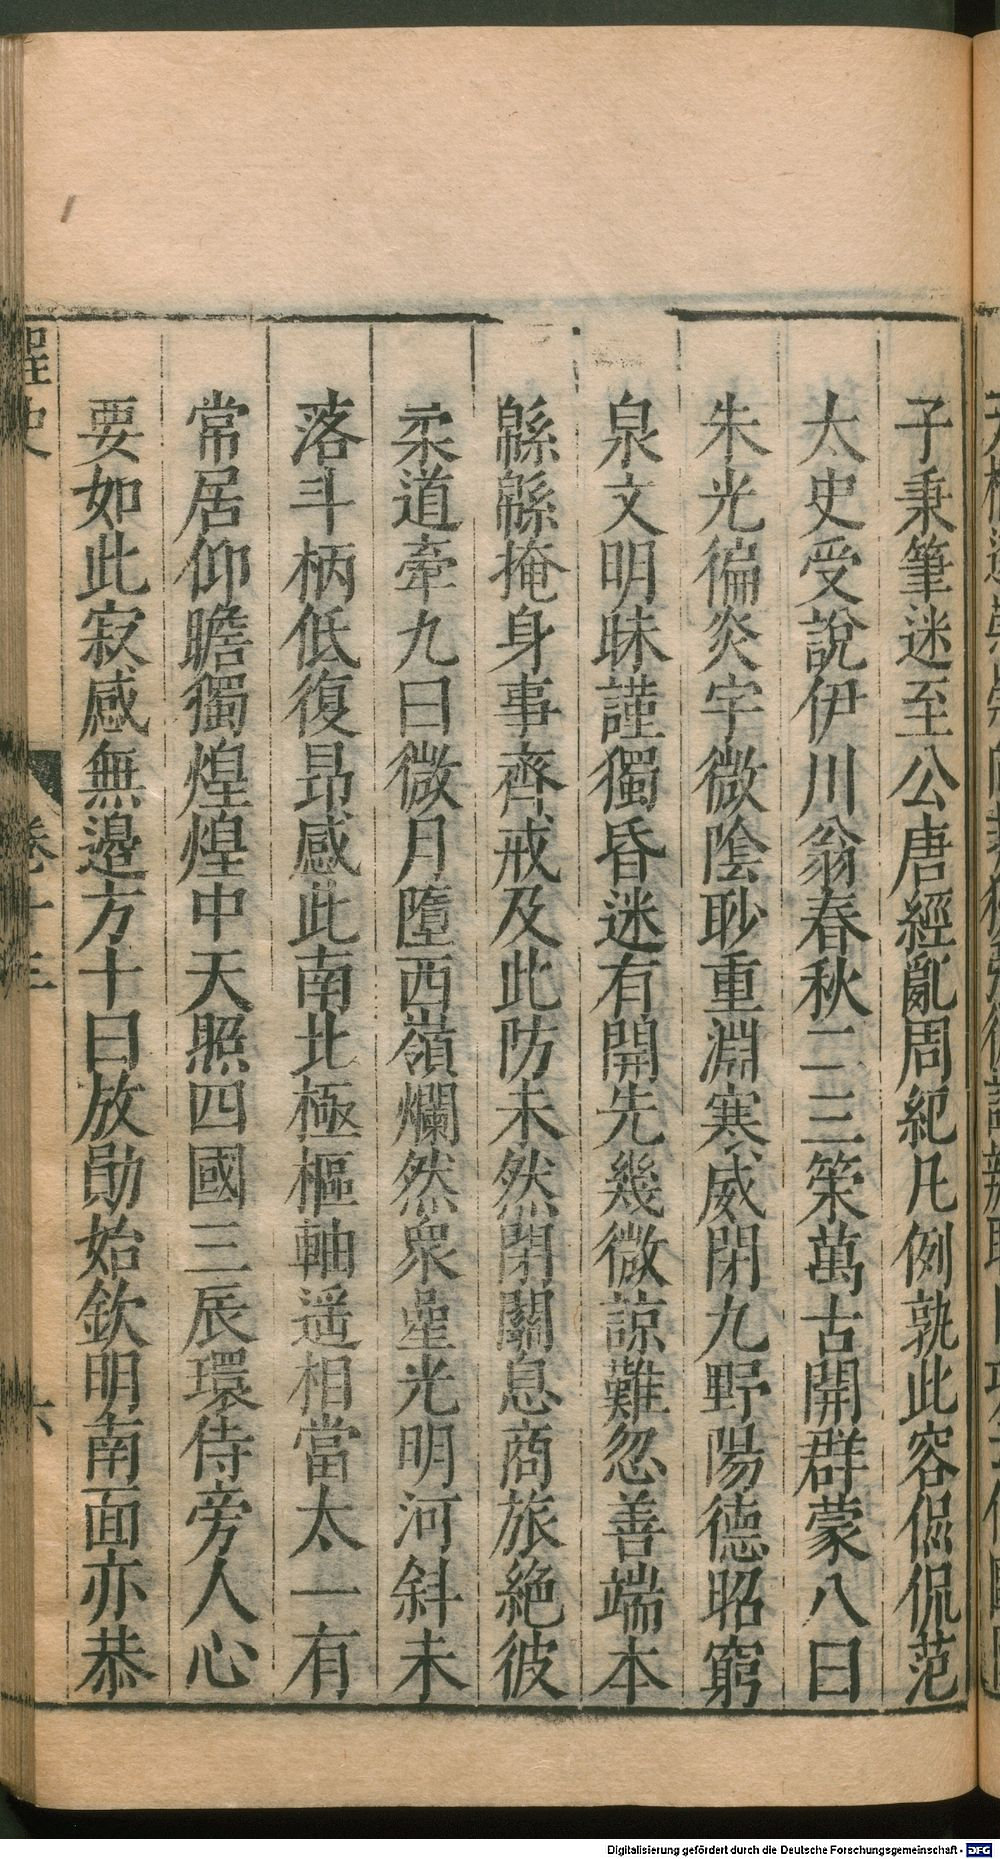 子秉筆迷至公唐經亂周紀凡例孰此容侃侃范
太史受說伊川翁春秋二三策萬古開群蒙八曰
朱光徧炎宇微陰眇重淵寒威閉九野陽德昭窮
泉文明昧謹獨昏迷有開先幾微諒難忽善端本
緜緜掩身事齊戒及此防未然閉關息商旅絶彼
柔道牽九曰微月墮西嶺爛然衆星光明河斜未
落斗柄低復昻感此南北極樞軸遥相當太一有
常居仰瞻獨煌煌中天照四國三辰環侍旁人心
要如此寂感無邉方十曰放勛始欽明南面亦恭
桯史
卷十三
六
Digitalisierung gefördert durch die Deutsche Forschungsgemeinschaft - DFG